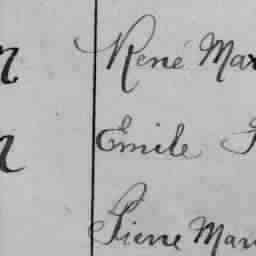 René Mar
Emile
Pierre Mari